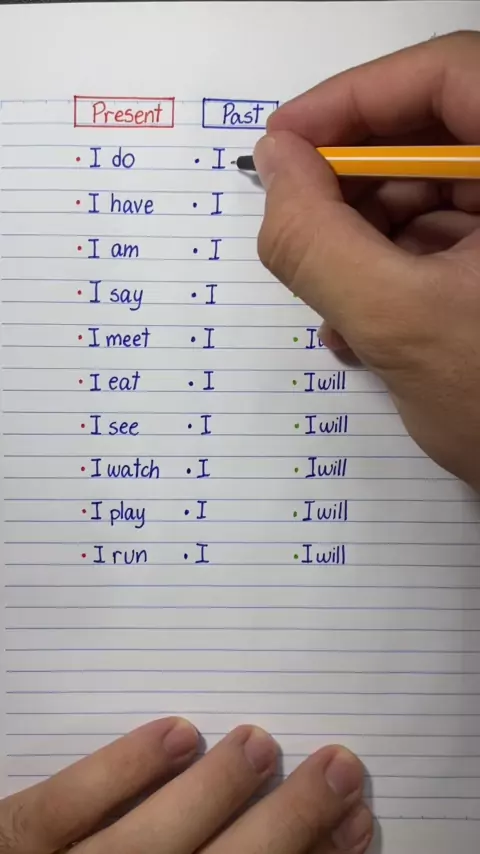 Present Past
I do I
I have I
I am I
I say I
I meet I I
I eat I I will
I see I I will
I watch I I will
I play I I will
I run I I will